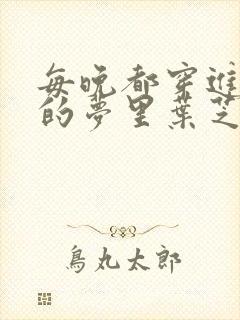 每晚都穿進
的夢里葉芝
鳥丸太郎